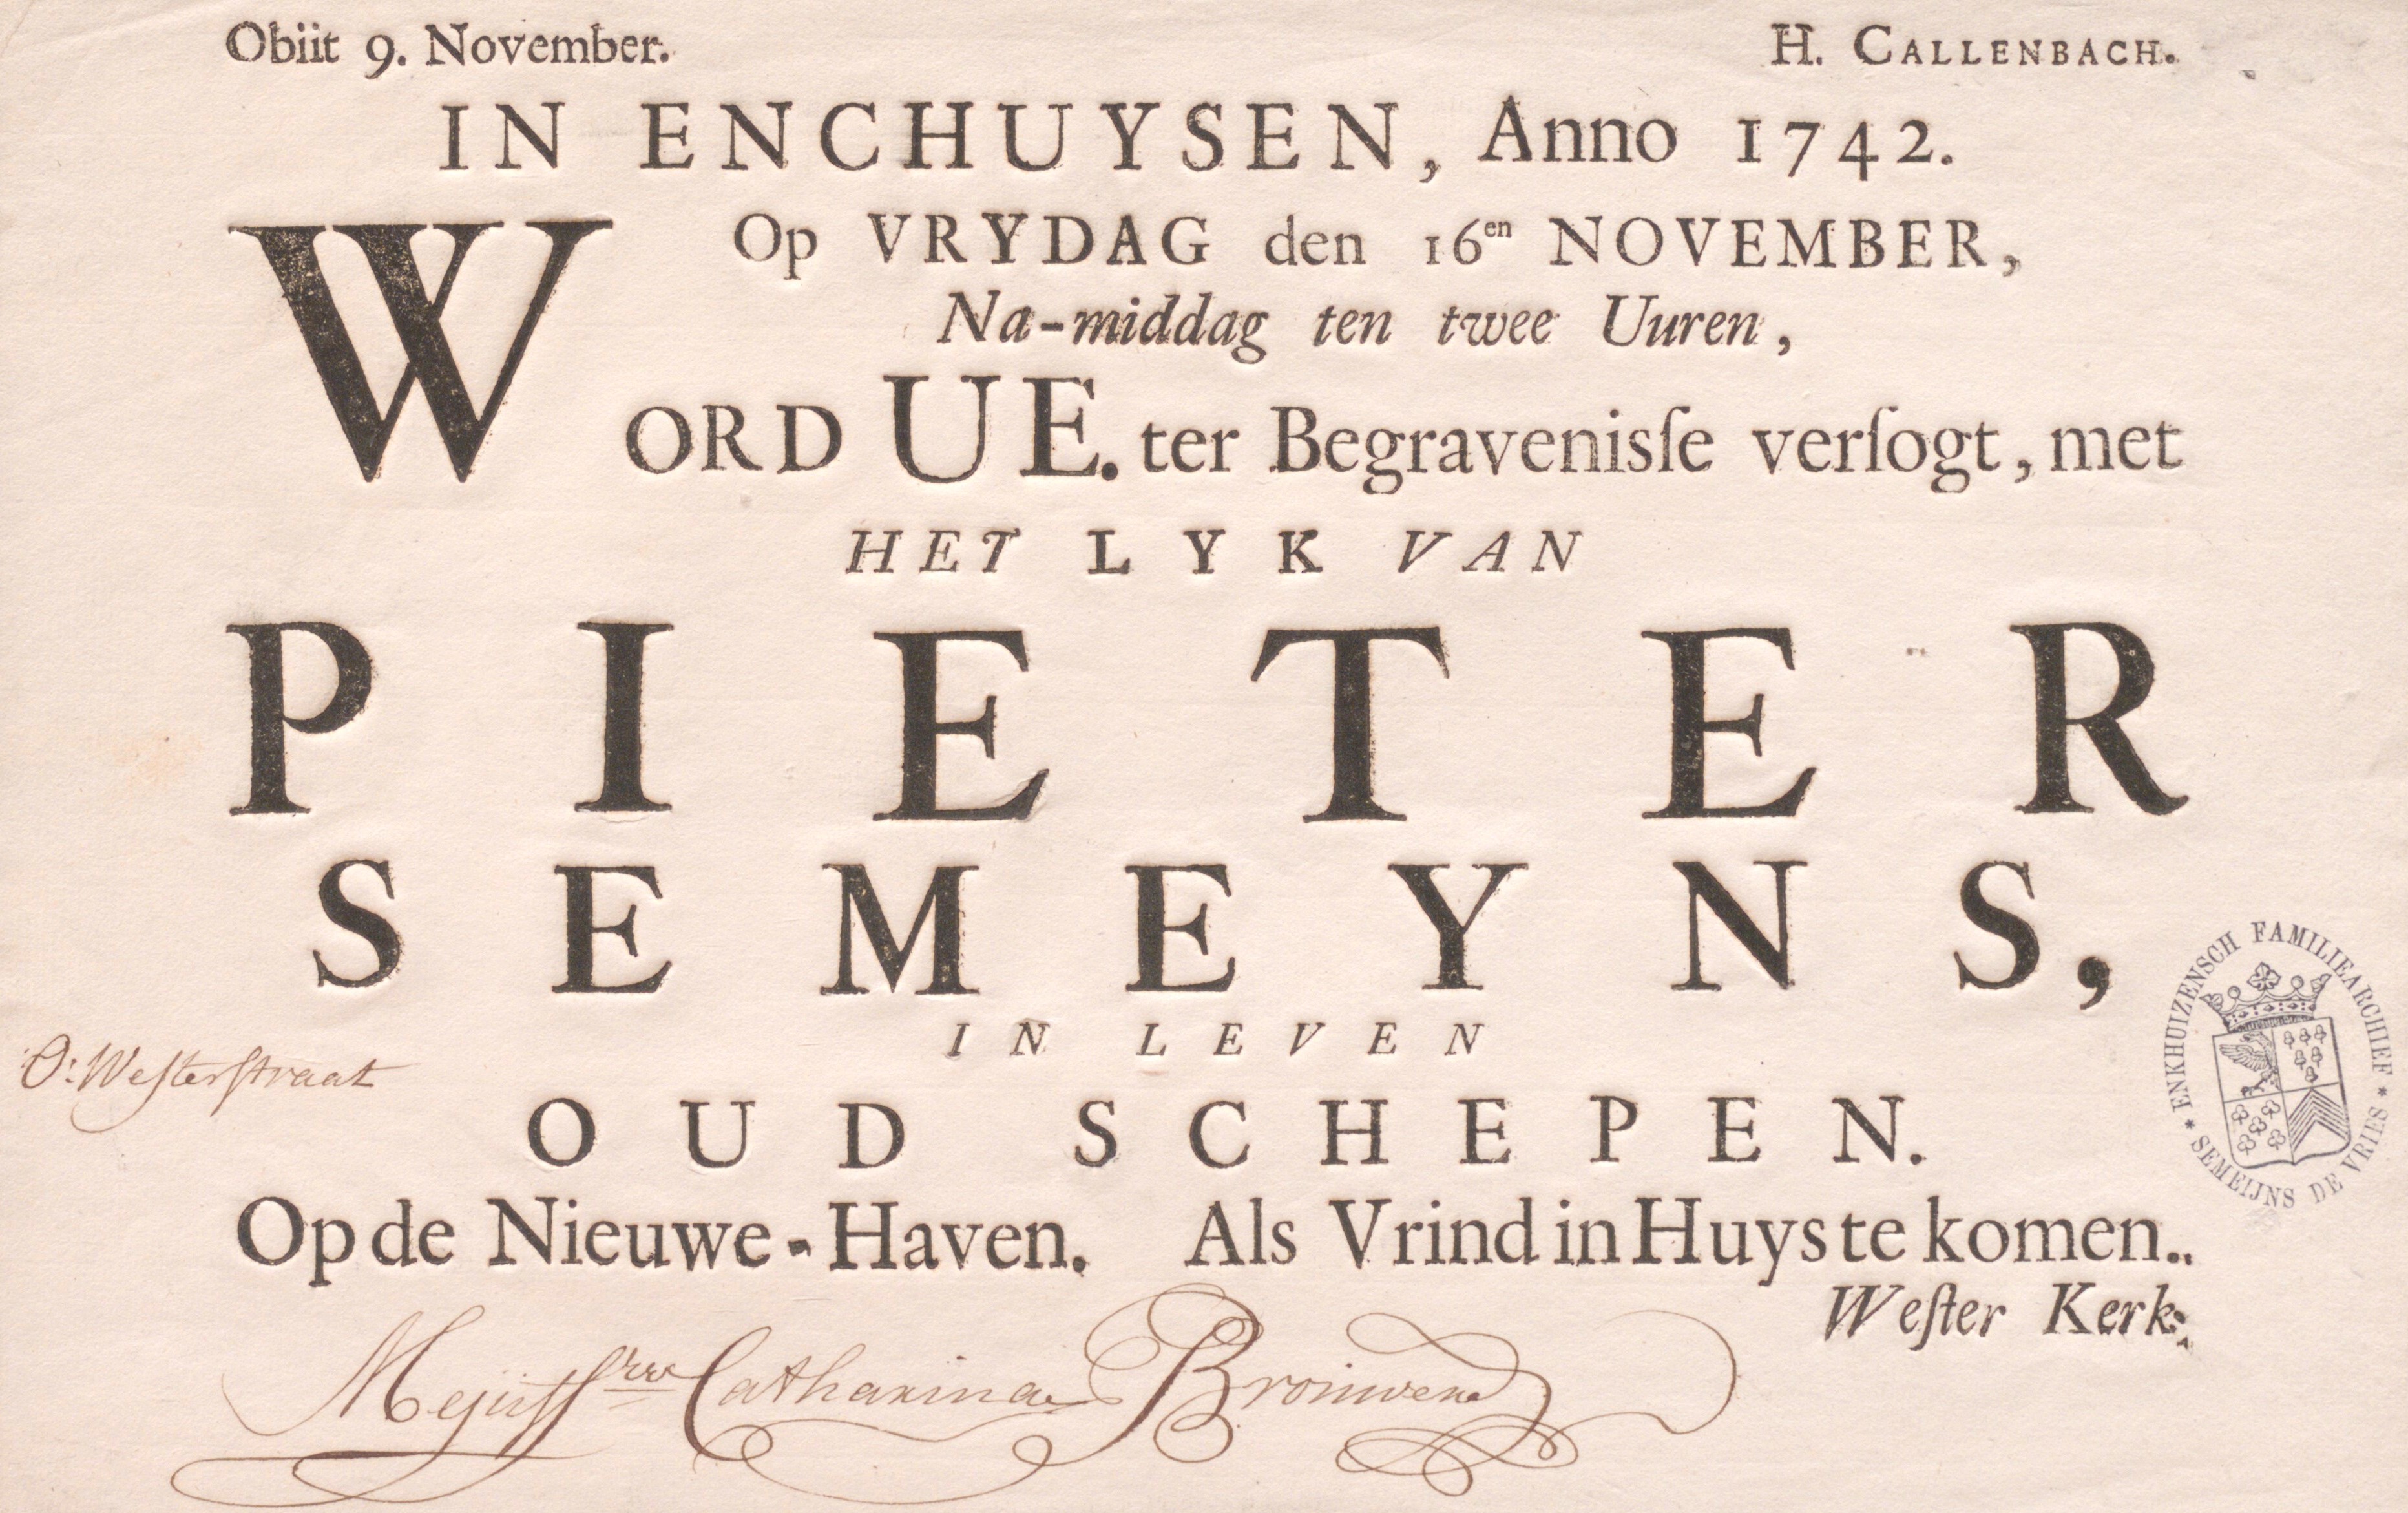 Obiit 9. November. H. CALLENBACH.
IN ENCHUYSEN, Anno 1742.
Op VRYDAG den 16en NOVEMBER,
Na-middag ten twee Uuren,
WORD UE. ter Begravenisſe verſogt, met
HET LYK VAN
PIETER
SEMEYNS,
IN LEVEN
O: Weſterſtraat
OUD SCHEPEN.
Op de Nieuwe-Haven. Als Vrind in Huys te komen..
Weſter Kerk.
Catharina Brouwers
* ENKHUIZENSCH FAMILIEARCHIEF *
SEMEIJNS DE VRIES